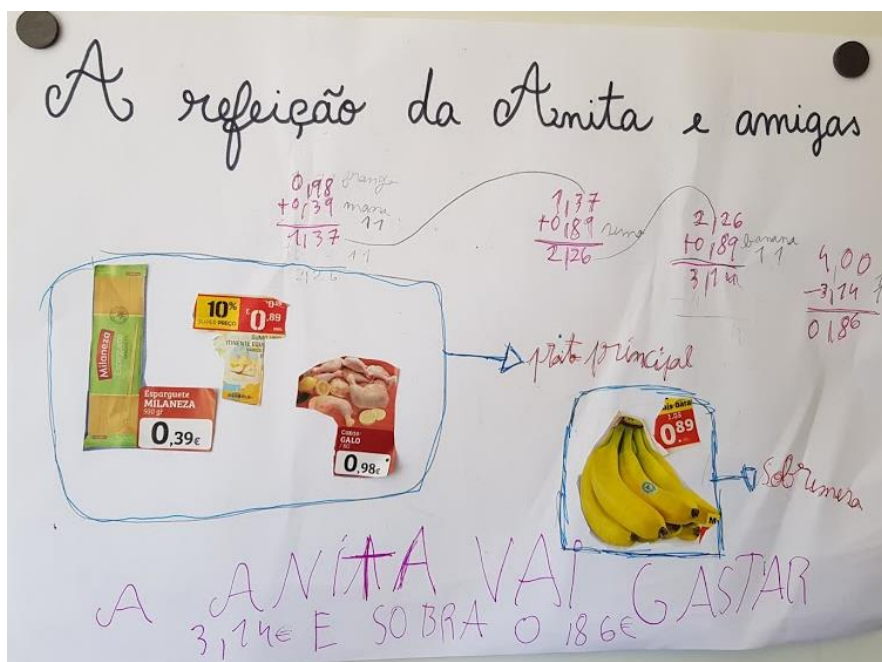 A refeição da Anita e amigas
0,98 frango
+0,39 massa
11
1,37
11
2,26
1,37
+0,89 sumo
2,26
2,26
+0,89 banana
11
3,14
4,00
-3,14
0,86
10%
SUPER PREÇO
€ 0,89
Milaneza
Esparguete
MILANEZA
500 gr
0,39€
GALO
0,98€
prato principal
0,89
sobremesa
A ANITA VAI GASTAR
3,14€ E SOBRA 0,86€